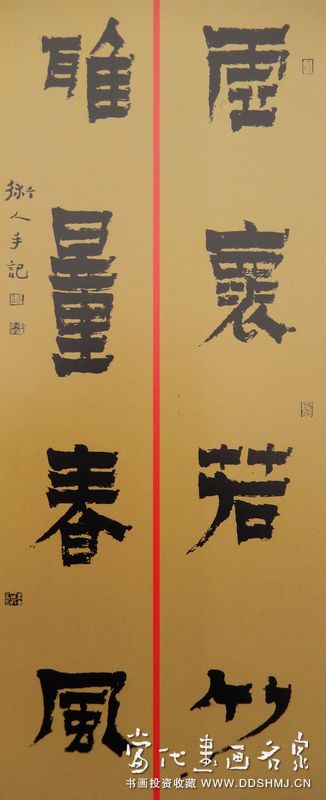 虛褱若竹
雅量春風
人手記
當代書画名家
书画投资收藏 WWW.DDSHMJ.CN